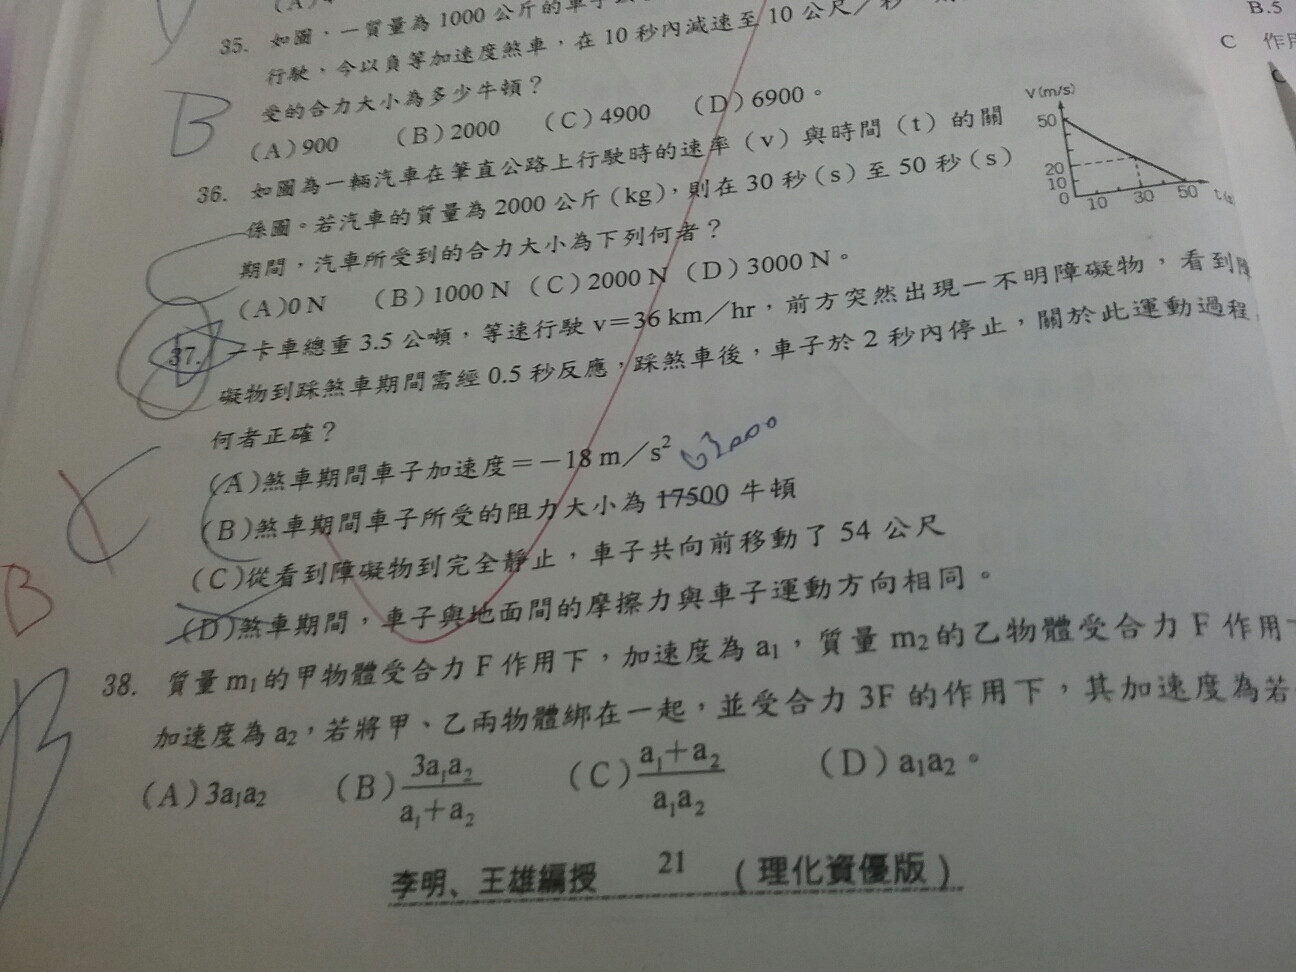 35. 如圖，一質量為1000公斤的車子
行駛，今以負等加速度煞車，在10秒內減速至10公尺／秒
受的合力大小為多少牛頓？
(A)900 (B)2000 (C)4900 (D)6900。
36. 如圖為一輛汽車在筆直公路上行駛時的速率(v)與時間(t)的關
係圖。若汽車的質量為2000公斤(kg)，則在30秒(s)至50秒(s)
期間，汽車所受到的合力大小為下列何者？
(A)0 N (B)1000 N (C)2000 N (D)3000 N。
37. 一卡車總重3.5公噸，等速行駛v＝36 km／hr，前方突然出現一不明障礙物，看到障
礙物到踩煞車期間需經0.5秒反應，踩煞車後，車子於2秒內停止，關於此運動過程
何者正確？
(A)煞車期間車子加速度＝－18 m／s²
63000
(B)煞車期間車子所受的阻力大小為17500牛頓
(C)從看到障礙物到完全靜止，車子共向前移動了54公尺
(D)煞車期間，車子與地面間的摩擦力與車子運動方向相同。
38. 質量m₁的甲物體受合力F作用下，加速度為a₁，質量m₂的乙物體受合力F作用
加速度為a₂，若將甲、乙兩物體綁在一起，並受合力3F的作用下，其加速度為若
(A)3a₁a₂ (B)3a₁a₂/a₁＋a₂ (C)a₁＋a₂/a₁a₂ (D)a₁a₂。
李明、王雄編授 21 (理化資優版)
V(m/s)
50
20
10
0 10 30 50
B
C
B
B
B.5
C 作用